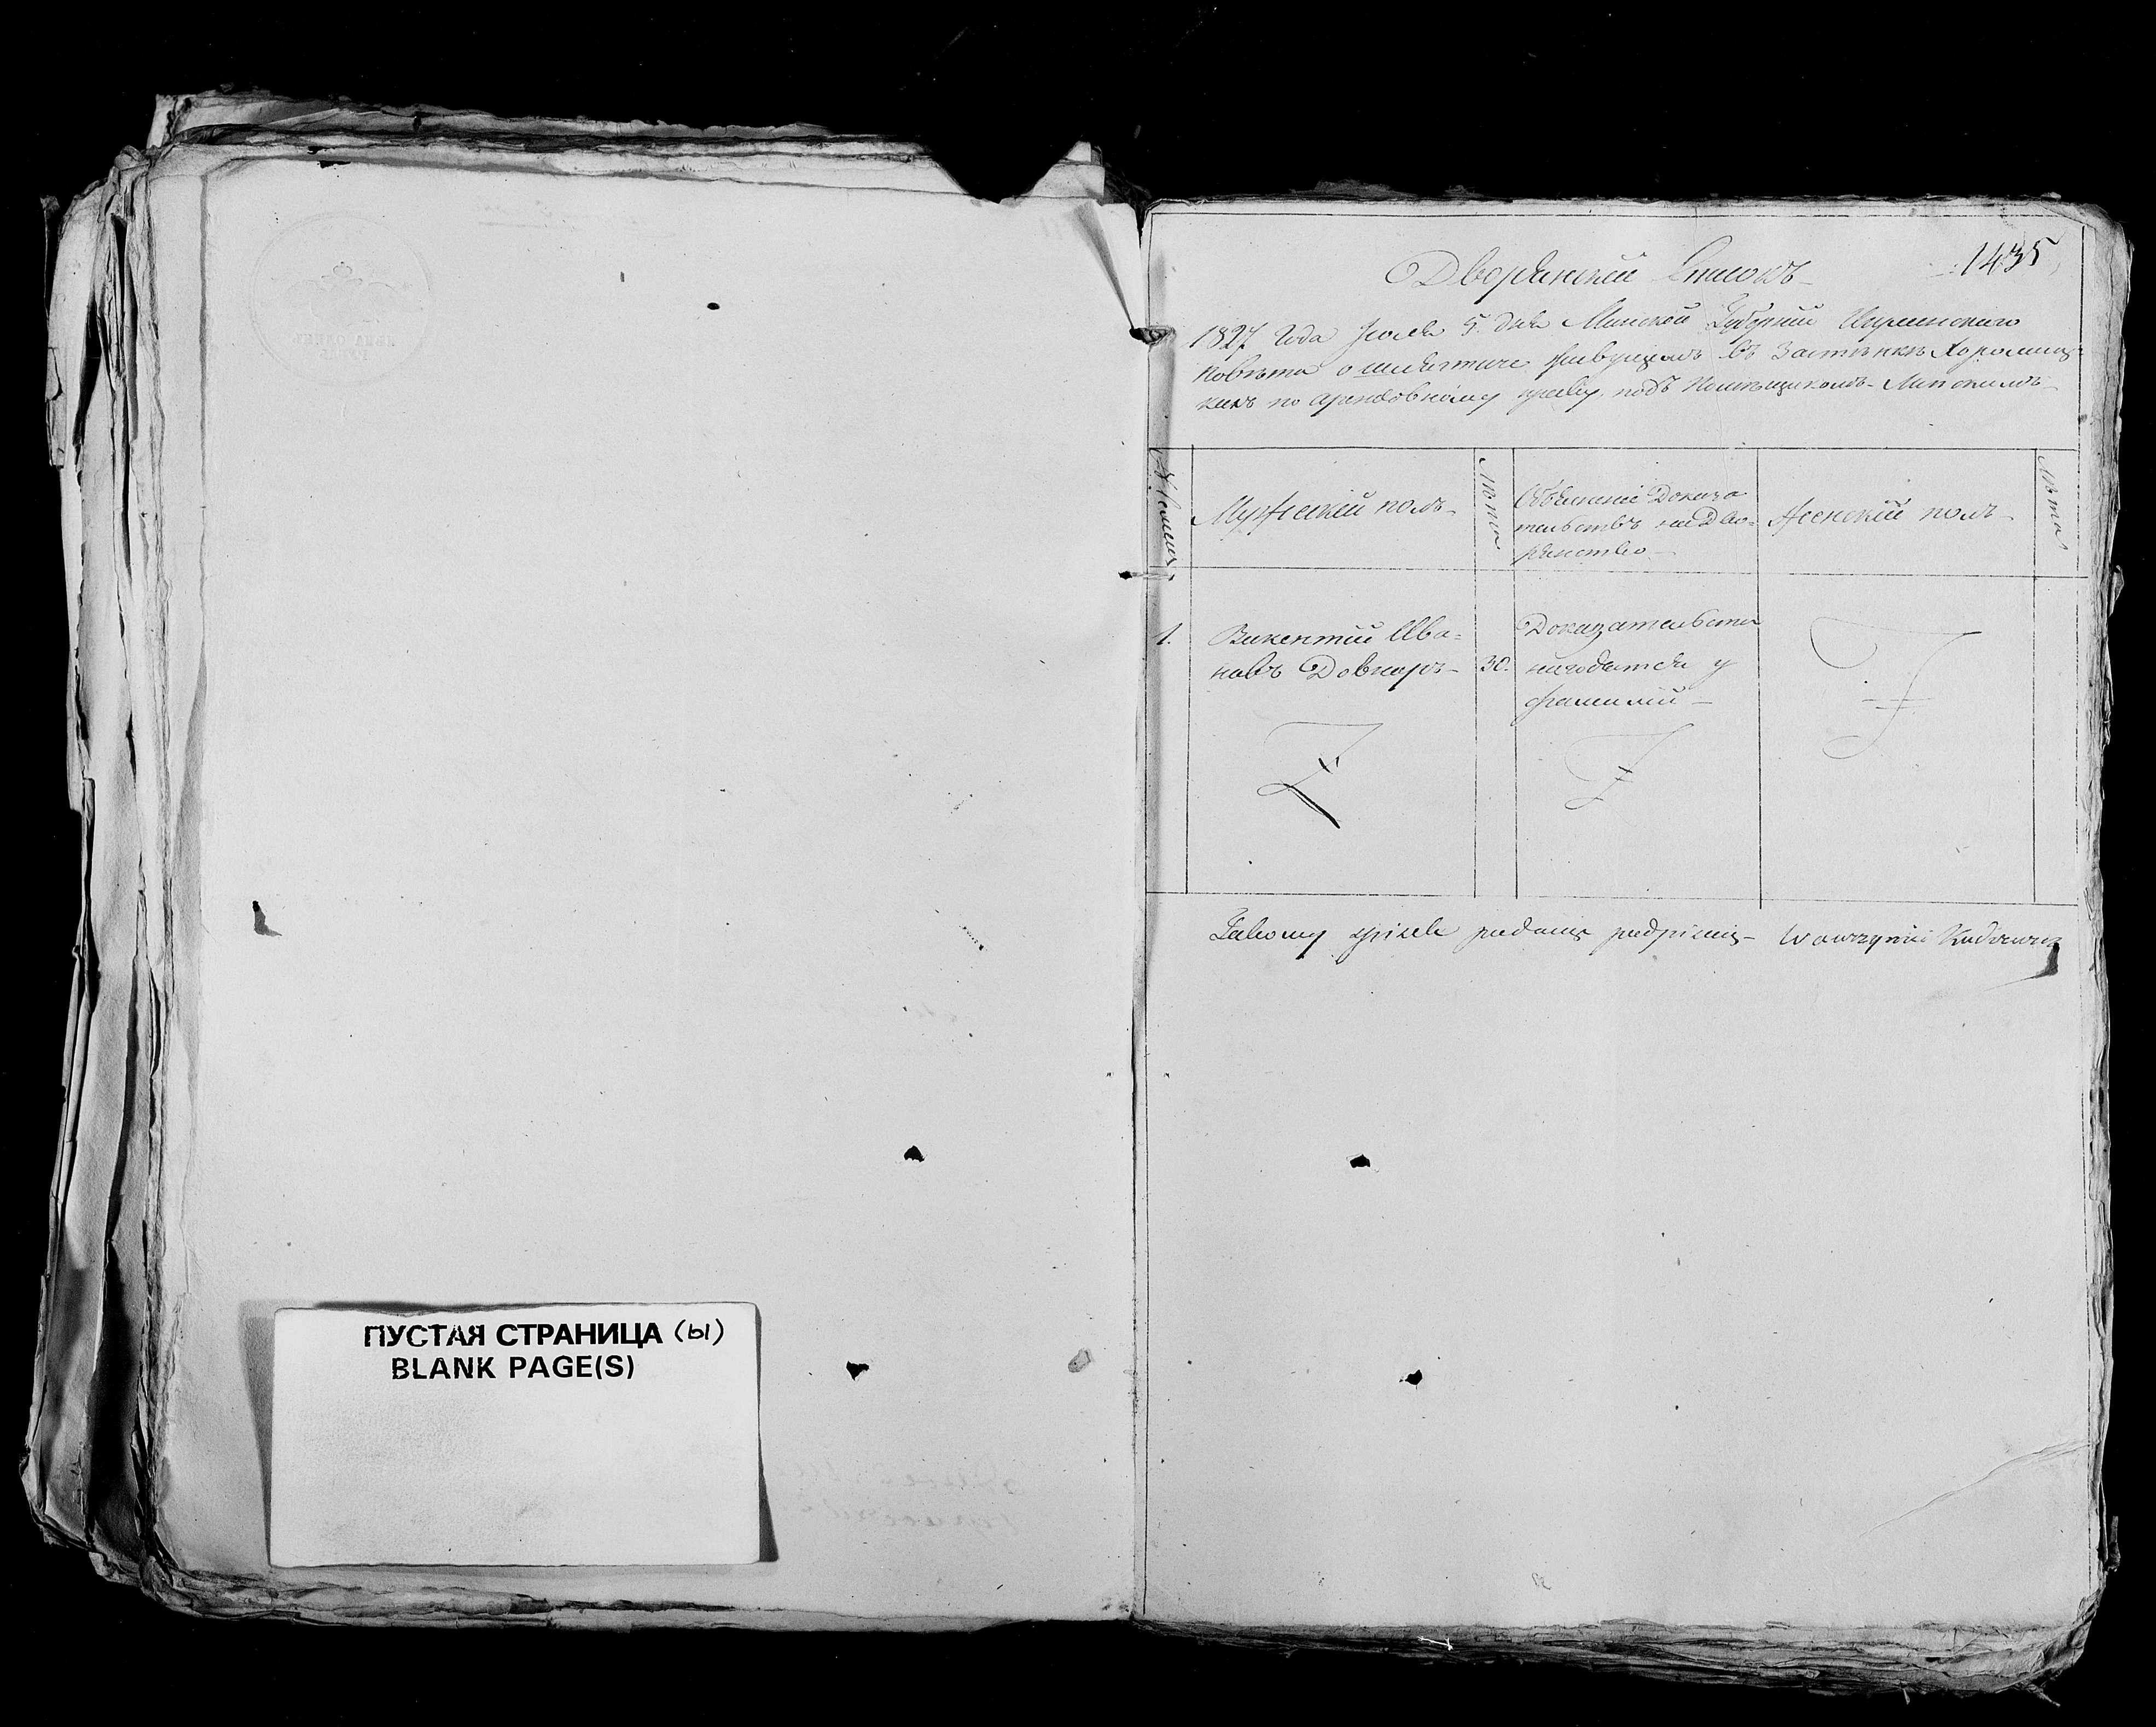 ПУСТАЯ СТРАНИЦА (ы)
BLANK PAGE(S)
1435
Дворянскій Списокъ
1827 Года Іюля 5. дня Минской Губерніи Игуменского
Повѣта о шляхтиче живущемъ въ Застѣнкѣ
по арендовному праву, подъ Помѣщикомъ
Мужескій полъ
Лѣта
Объясненіе Доказа
тельствъ на Дво-
рянство
Женскій полъ
Лѣта
1.
Викентій Ива-
новъ Довнаръ
30.
Доказательства
находятся у
фамиліи
Takowy spisek podaiąc podpisuię Wawrzyniec